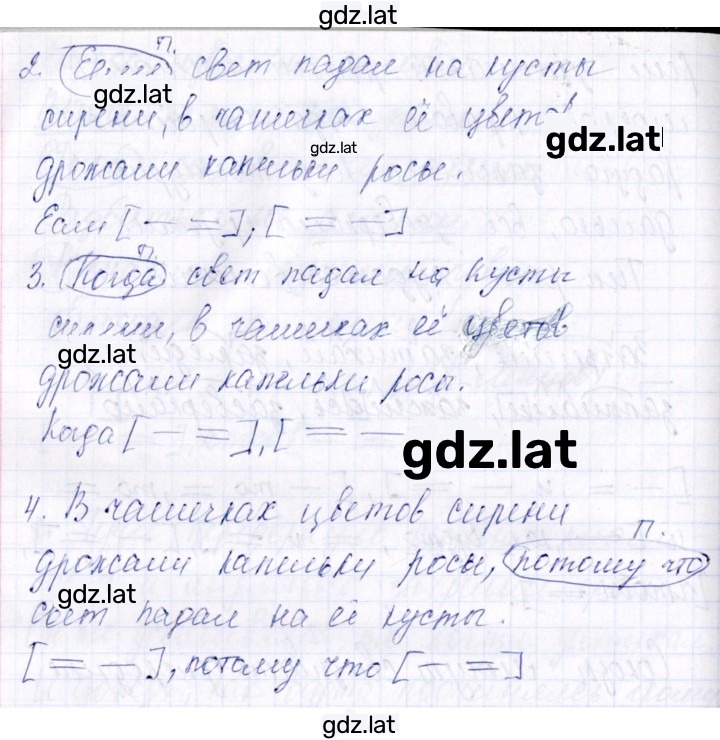 gdz.lat
п.
2. Если свет падал на кусты
gdz.lat
сирени, в чашечках её цветов
gdz.lat
gdz.lat
дрожали капельки росы.
Если [— =], [= —]
п.
3. Когда свет падал на кусты
сирени, в чашечках её цветов
gdz.lat
дрожали капельки росы.
Когда [— =], [= —
gdz.lat
4. В чашечках цветов сирени
п.
дрожали капельки росы, потому что
gdz.lat
свет падал на её кусты.
[= —], потому что [— =]
gdz.lat